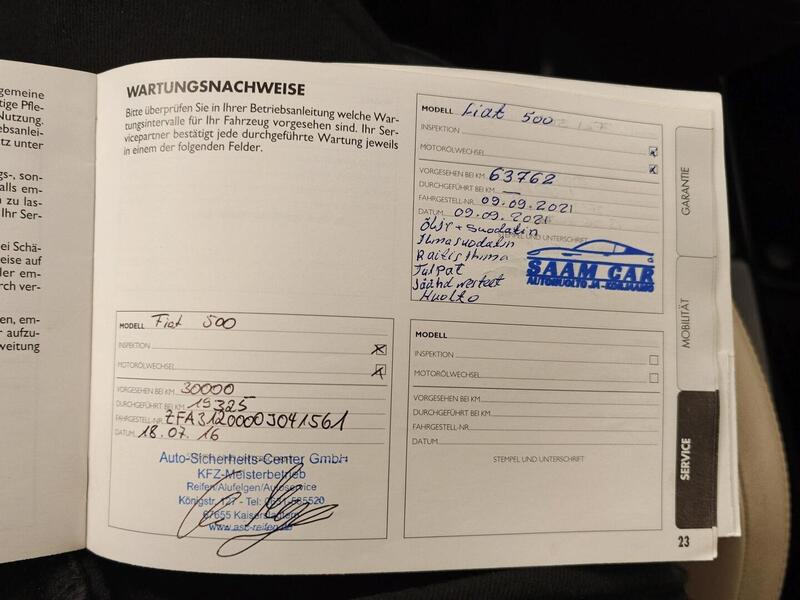 gemeine
tige Pfle-
Nutzung.
ebsanlei-
tz unter
gs-, son-
alls em-
zu las-
Ihr Ser-
ei Schä-
eise auf
der em-
rch ver-
en, em-
r aufzu-
weitung
WARTUNGSNACHWEISE
Bitte überprüfen Sie in Ihrer Betriebsanleitung welche War-
tungsintervalle für Ihr Fahrzeug vorgesehen sind. Ihr Ser-
vicepartner bestätigt jede durchgeführte Wartung jeweils
in einem der folgenden Felder.
MODELL Fiat 500
INSPEKTION
MOTORÖLWECHSEL
VORGESEHEN BEI KM 63762
DURCHGEFÜHRT BEI KM —
FAHRGESTELL-NR. 09.09.2021
DATUM 09.09.2021
Öljy + suodatin
STEMPEL UND UNTERSCHRIFT
Ilmasuodatin
Raitis ilma
Tulpat
Huolto
SAAM CAR
AUTOHUOLTO JA -KORJAAMO
MODELL Fiat 500
INSPEKTION
MOTORÖLWECHSEL
VORGESEHEN BEI KM 30000
DURCHGEFÜHRT BEI KM 19325
FAHRGESTELL-NR. ZFA3120000J041561
DATUM 18.07.16
Auto-Sicherheits-Center GmbH
KFZ-Meisterbetrieb
Reifen/Alufelgen/Autoservice
Königstr. 127 - Tel:
67655 Kaiserslautern
www.asc-reifen.de
MODELL
INSPEKTION
MOTORÖLWECHSEL
VORGESEHEN BEI KM
DURCHGEFÜHRT BEI KM
FAHRGESTELL-NR.
DATUM
STEMPEL UND UNTERSCHRIFT
GARANTIE
MOBILITÄT
SERVICE
23